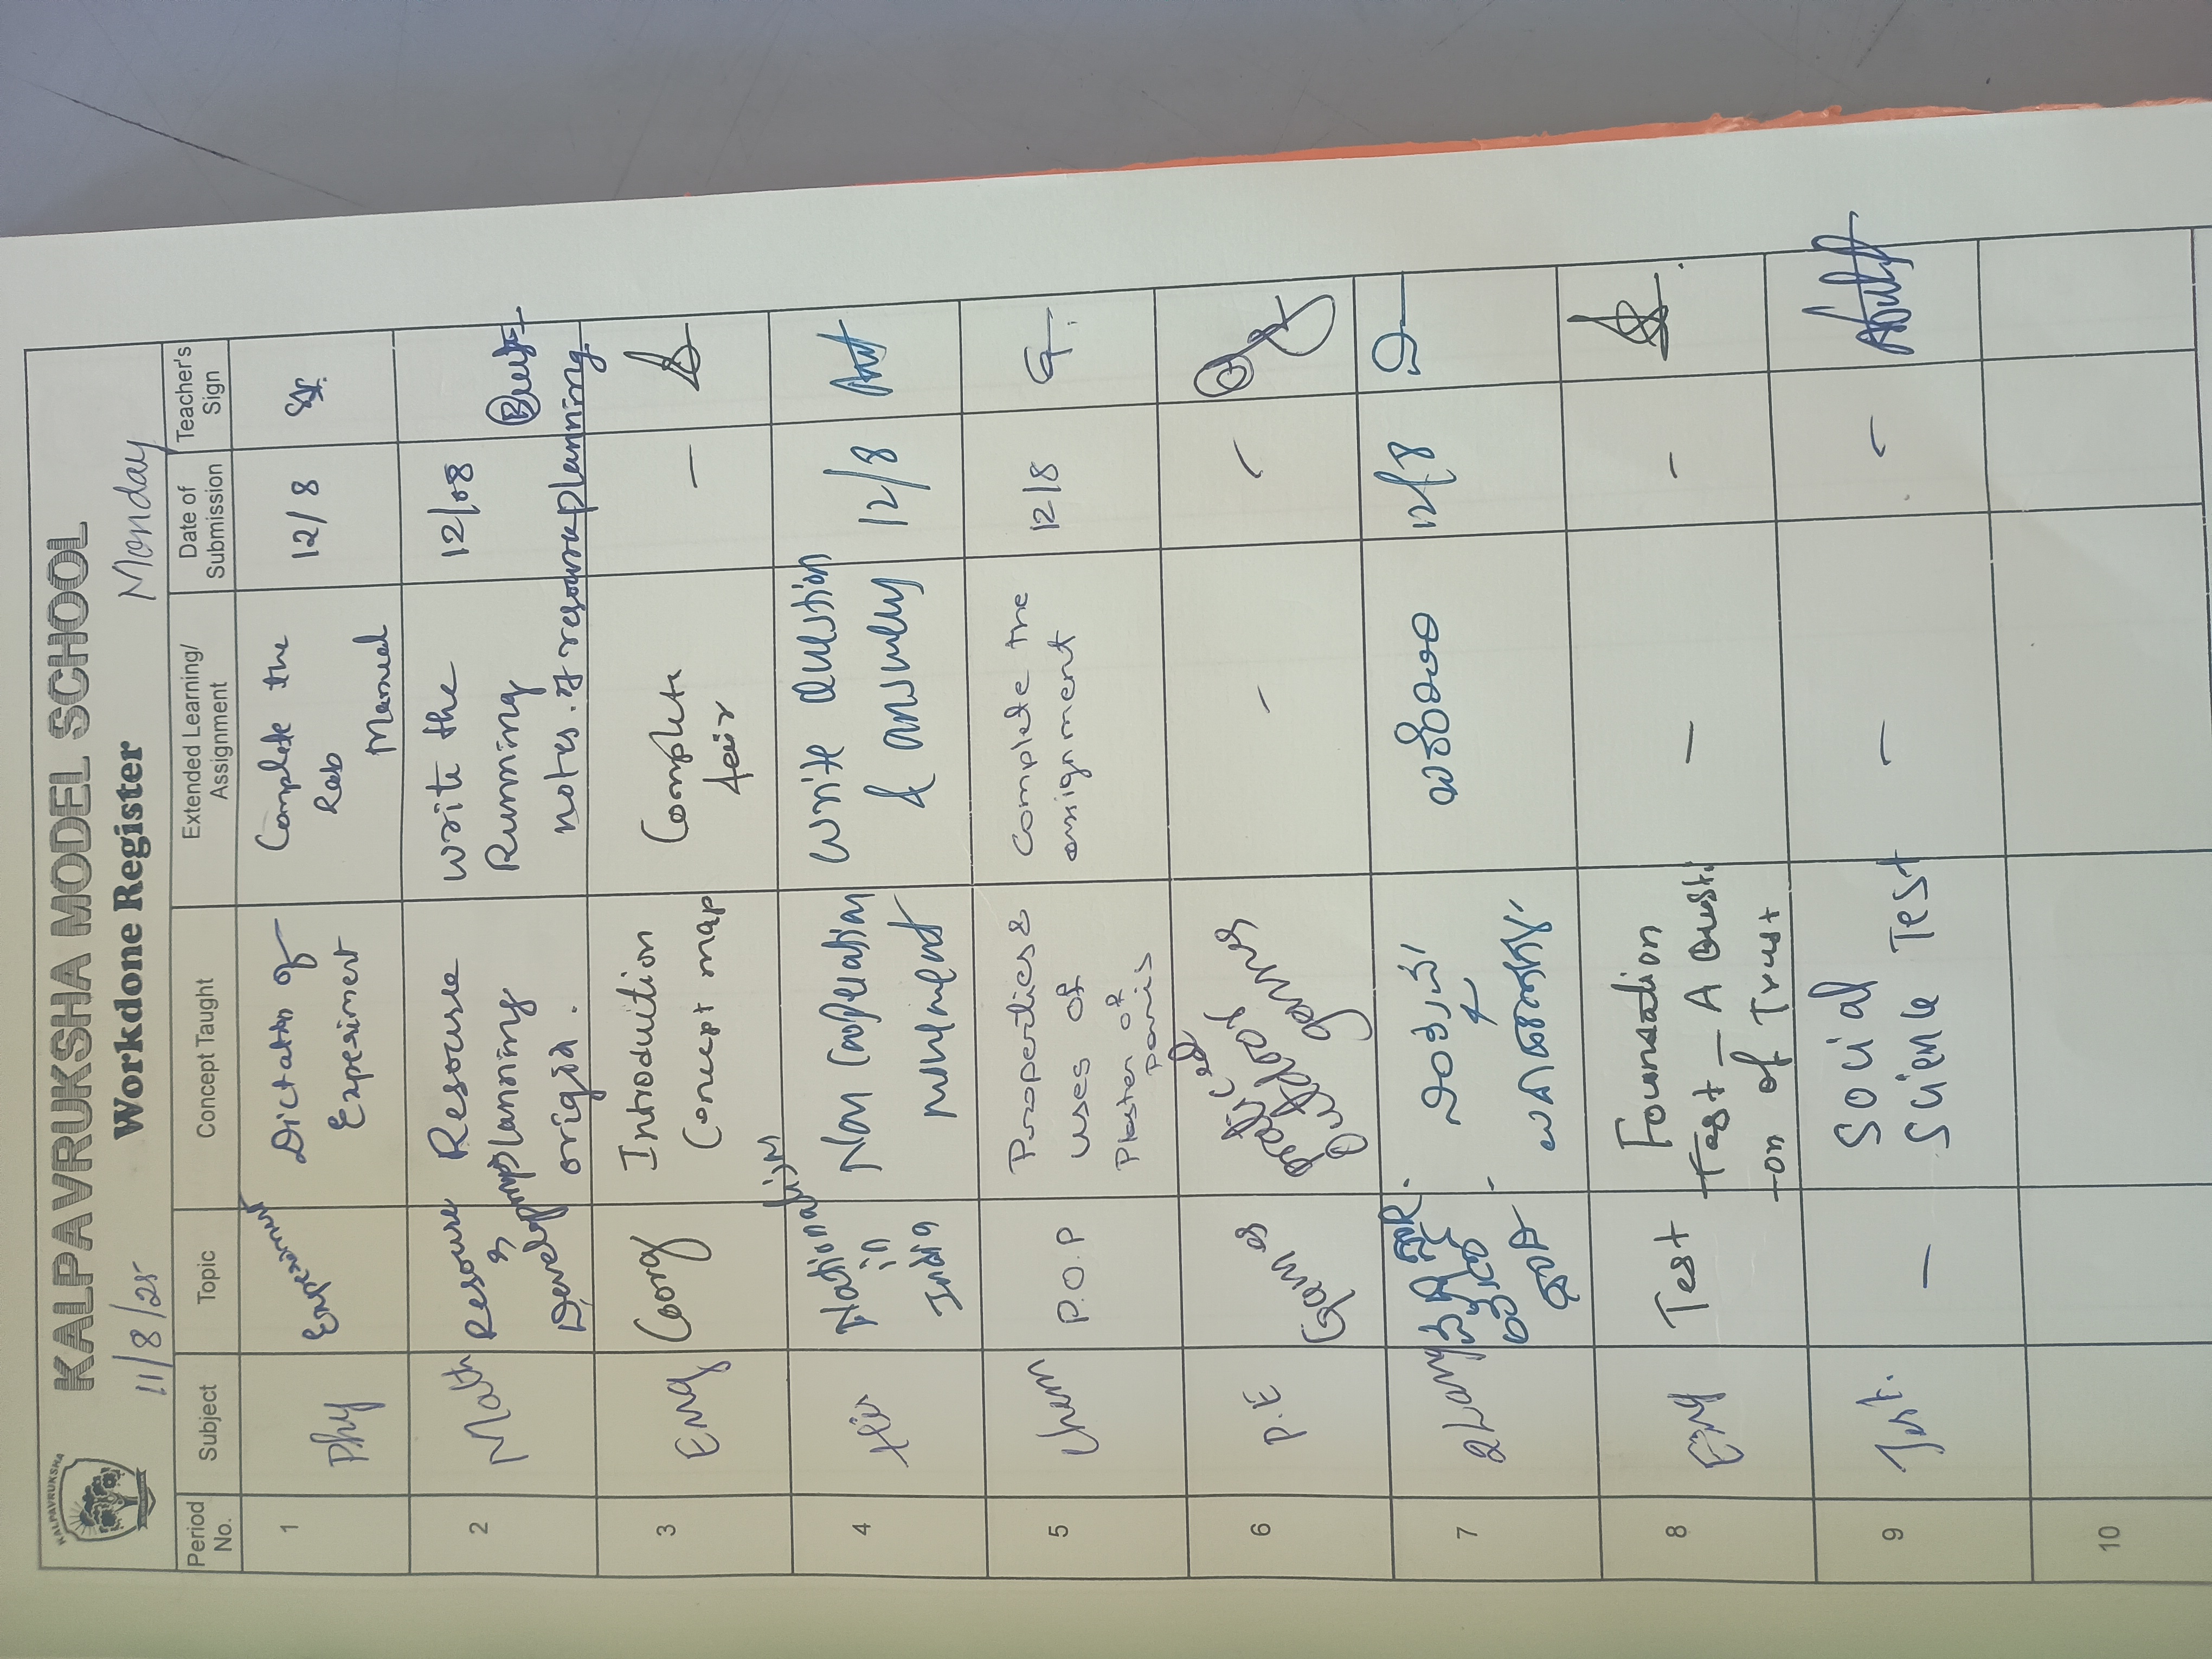 KALPAVRUKSHA
KALPAVRUKSHA MODEL SCHOOL
11/8/25 Workdone Register Monday
Period No. Subject Topic Concept Taught Extended Learning/ Assignment Date of Submission Teacher's Sign
1 Phy Experiment Dictation of Experiment Complete the Lab Manual 12/8
2 Math Resource & Development Resourse planning origin. write the Running notes. of resourse planning 12/08
3 Eng Coorg Introduction Concept map Complete fair —
4 His Nationalism in India Non Cooperation movement Write Question & answers 12/8
5 Chem P.O.P Properties & uses of Plaster of paris Complete the assignment 12/8
6 P.E Games practiced outdoor games - -
7 2Lang 12/8
8 Eng Test Foundation Test - A Questi on of Trust — -
9 Test. — Social Science Test — -
10